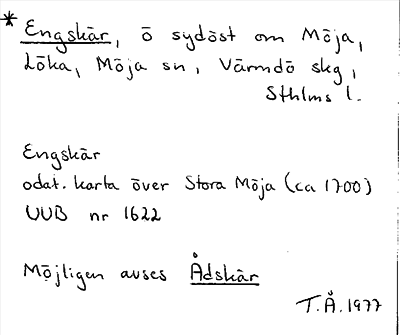 * Engskär, ö sydöst om Möja,
Löka, Möja sn, Värmdö skg,
Sthlms l.
Engskär
odat. karta över Stora Möja (ca 1700)
UUB nr 1622
Möjligen avses Ådskär
T.Å. 1977